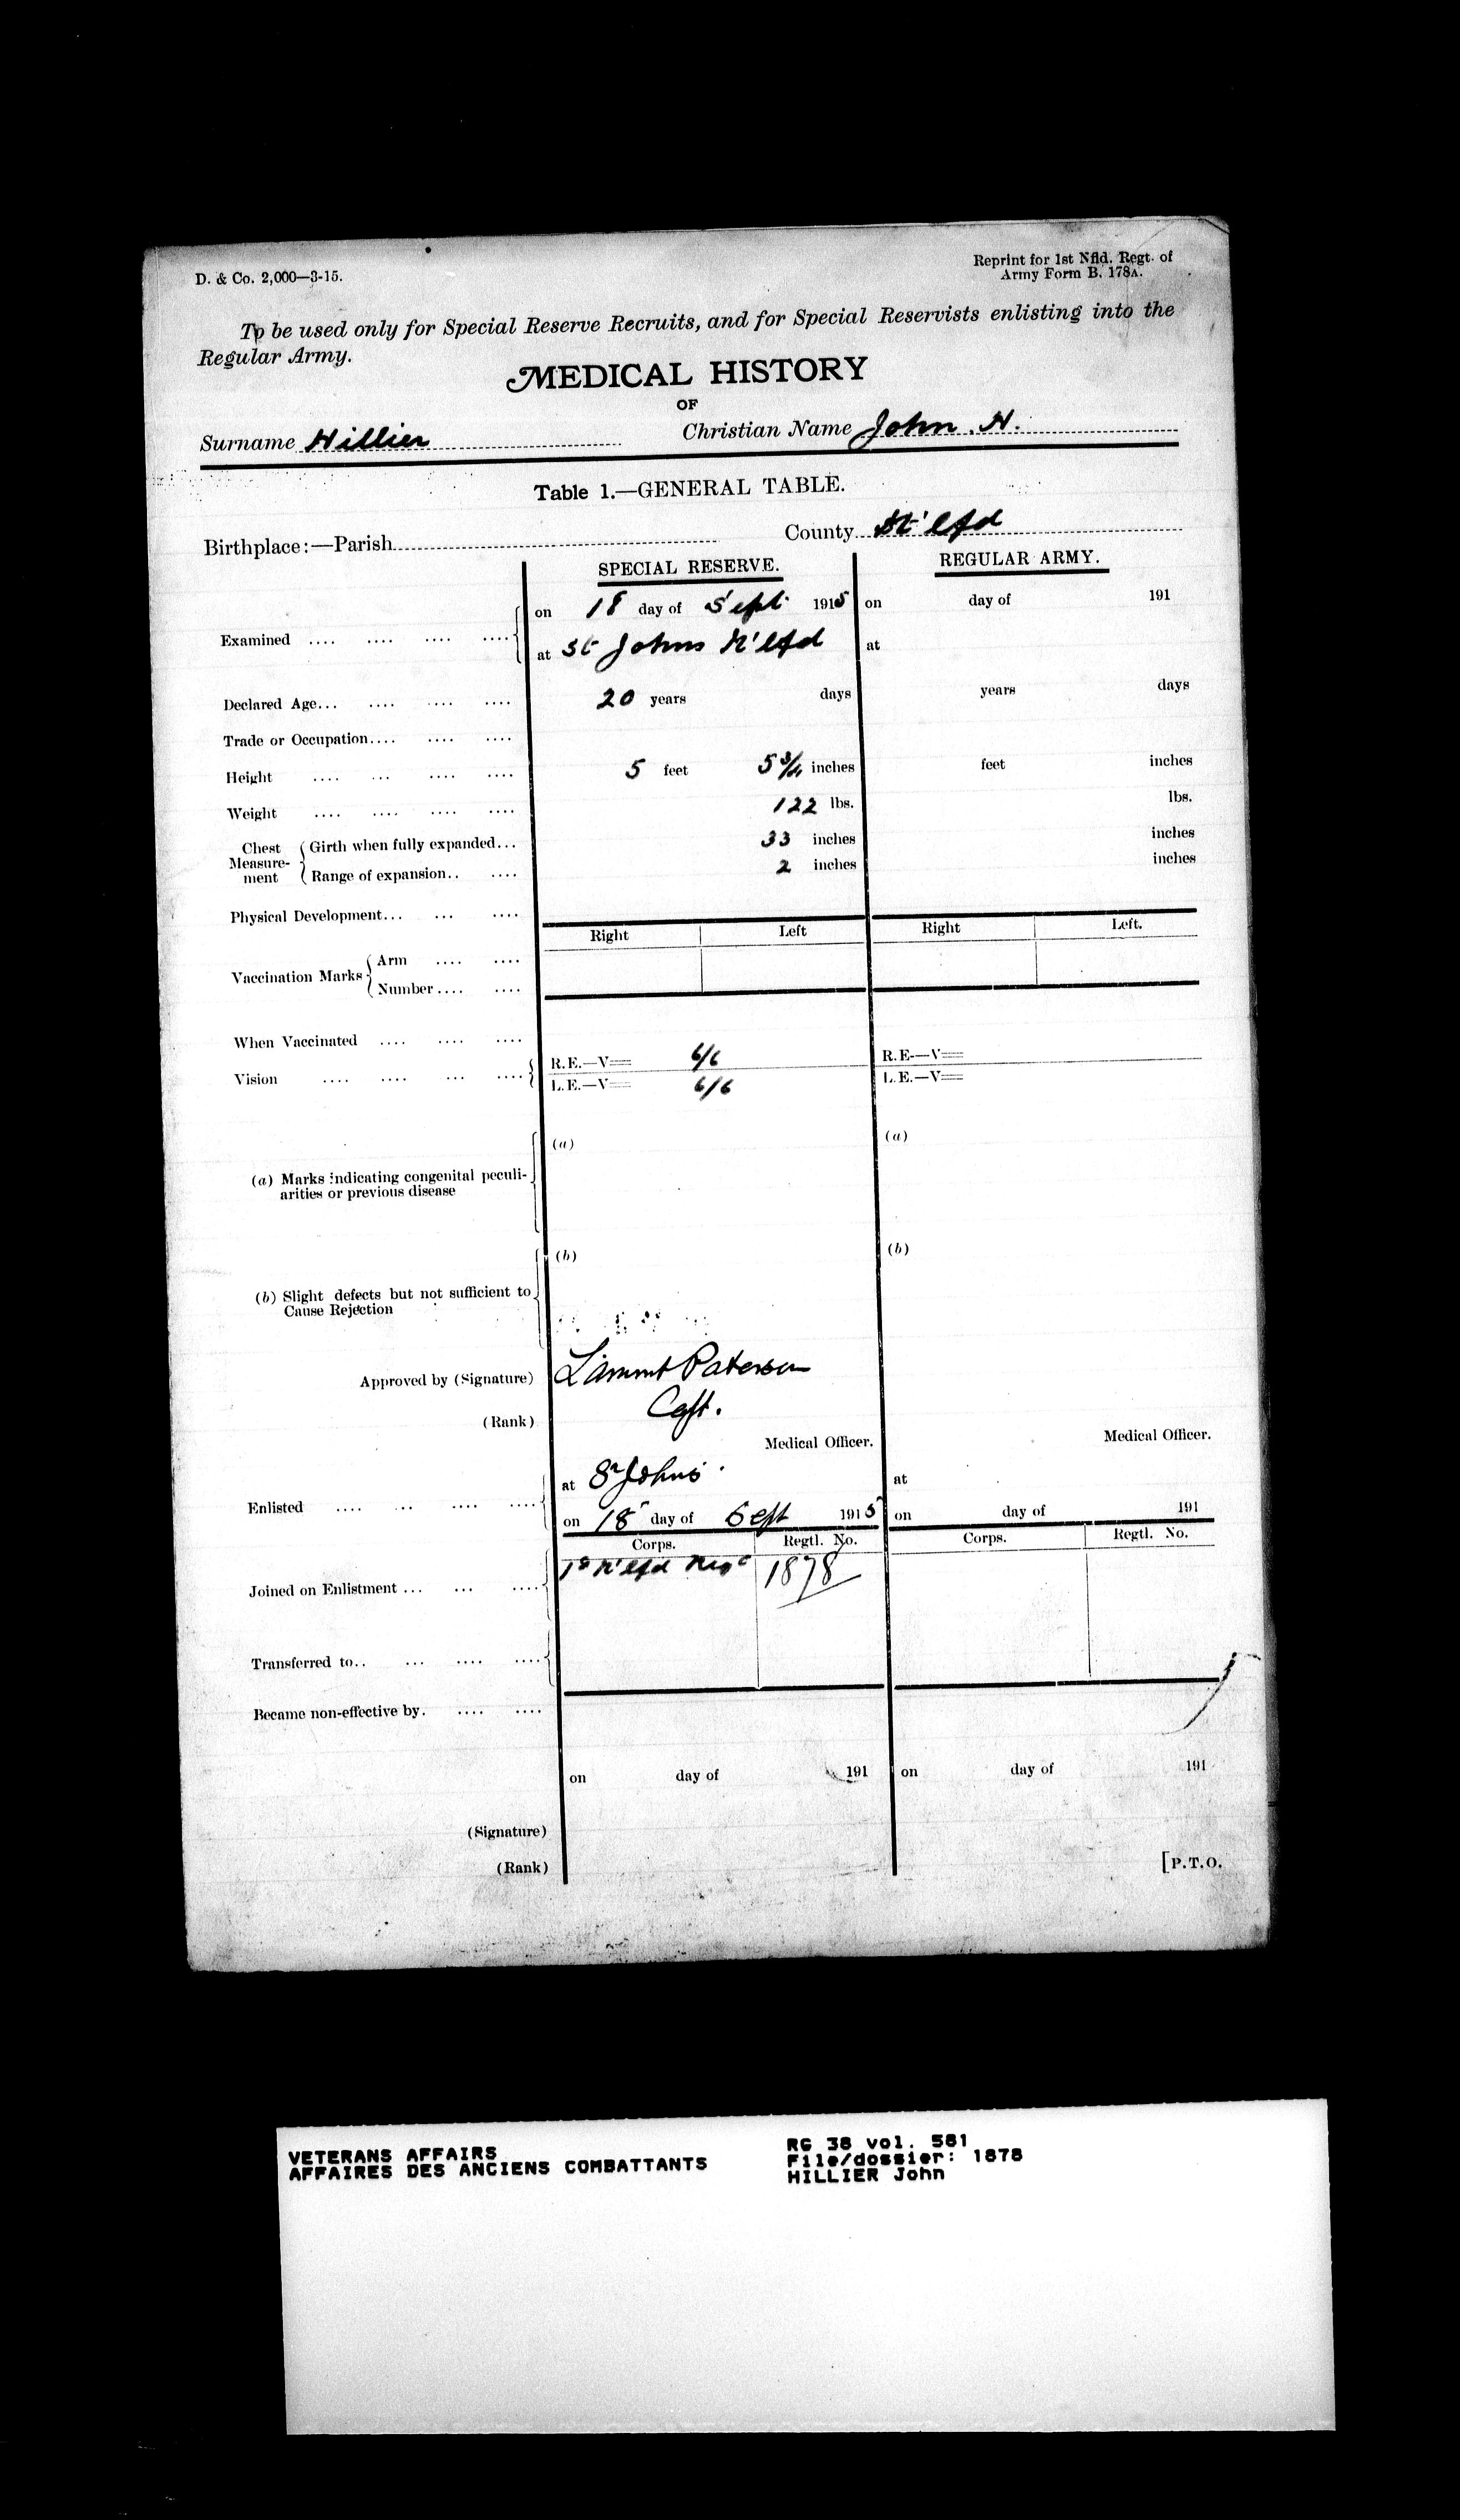 D. & Co. 2,000—3-15.
Reprint for 1st Nfld. Regt. of
Army Form B. 178A.
To be used only for Special Reserve Recruits, and for Special Reservists enlisting into the
Regular Army.
MEDICAL HISTORY
OF
Surname Hillier Christian Name John. H.
Table 1.—GENERAL TABLE.
Birthplace:—Parish County N'lfd
SPECIAL RESERVE. REGULAR ARMY.
on 18 day of Sept 1915 on day of 191
Examined .... .... .... ....
at St Johns N'lfd at
Declared Age... .... .... .... 20 years days years days
Trade or Occupation.... .... ....
Height .... ... .... .... 5 feet 5 3/4 inches feet inches
Weight .... .... .... .... 122 lbs. lbs.
Chest Measurement Girth when fully expanded... 33 inches inches
Range of expansion.. .... 2 inches inches
Physical Development... ... ....
Right Left Right Left.
Vaccination Marks Arm .... ....
Number .... ....
When Vaccinated .... .... ....
R.E.—V= 6/6 R.E—V=
Vision .... .... ... ....
L.E.—V= 6/6 L.E.—V=
(a) (a)
(a) Marks indicating congenital peculi-
arities or previous disease
(b) (b)
(b) Slight defects but not sufficient to
Cause Rejection
Approved by (Signature) Paterson
(Rank) Capt.
Medical Officer. Medical Officer.
at St Johns at
Enlisted .... ... .... ....
on 18 day of Sept 1915 on day of 191
Corps. Regtl. No. Corps. Regtl. No.
Joined on Enlistment ... ... .... 1st N'lfd Regt 1878
Transferred to.. ... .... ....
Became non-effective by. .... ....
on day of 191 on day of 191
(Signature)
(Rank)
[P.T.O.
VETERANS AFFAIRS
AFFAIRES DES ANCIENS COMBATTANTS
RG 38 vol. 581
File/dossier: 1878
HILLIER John